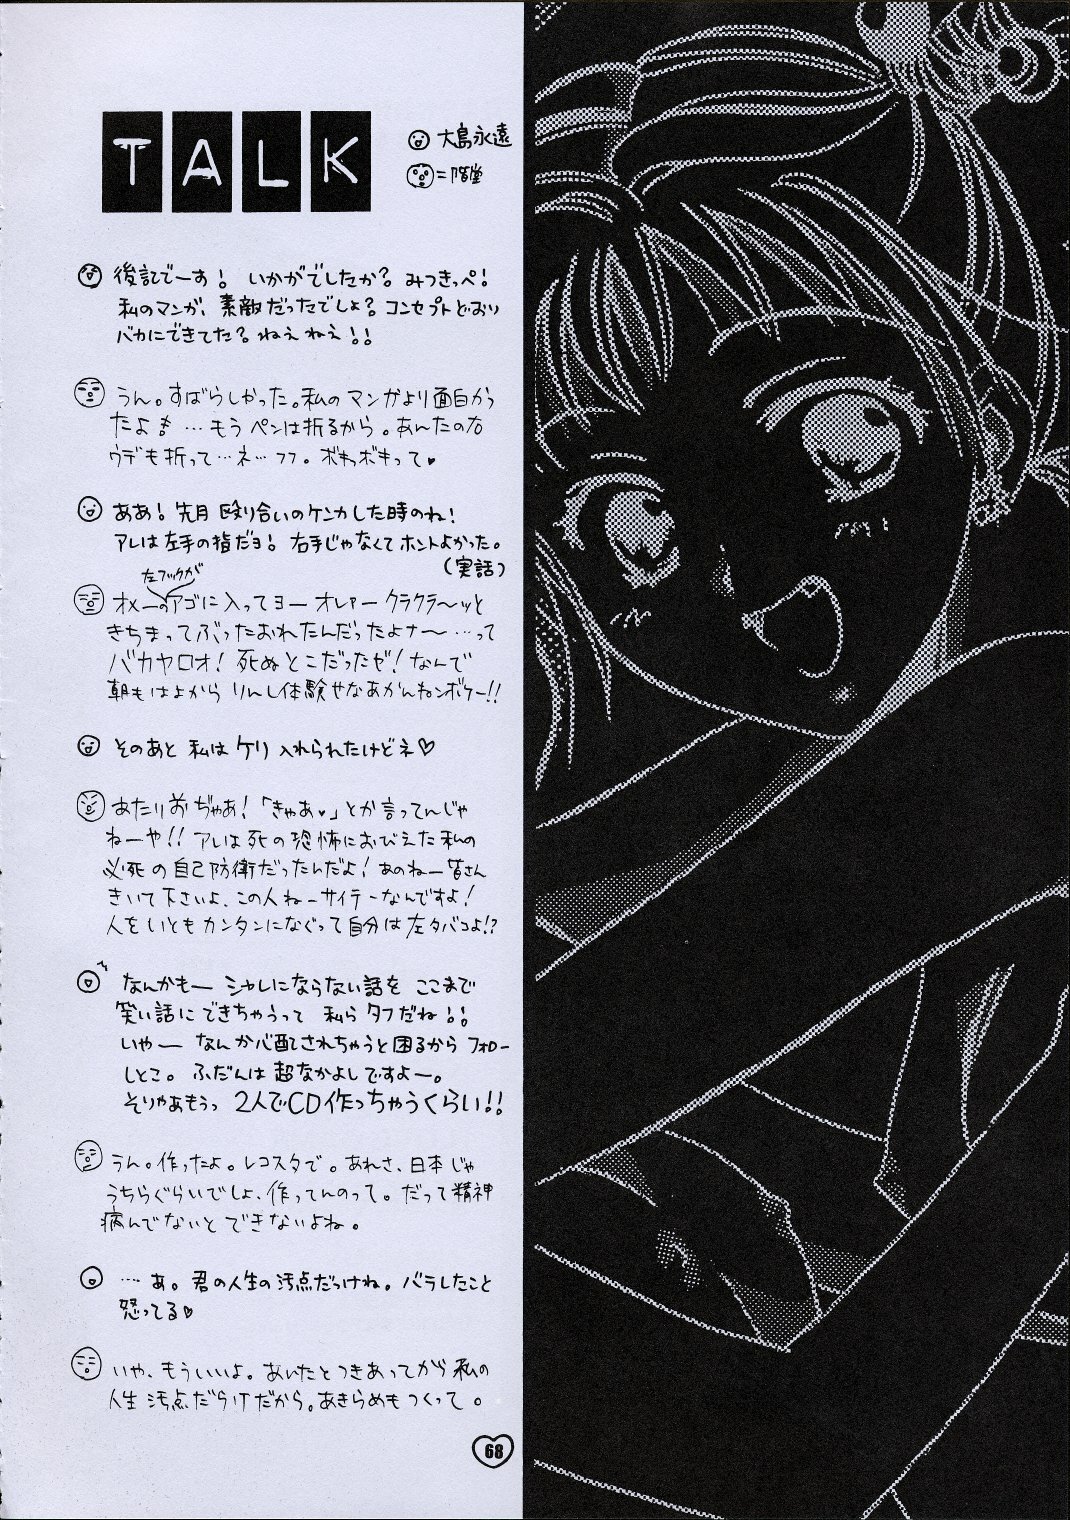 TALK
大島永遠
=階堂
後記でーす! いかがでしたか? みつきっペ!
私のマンガ、素敵だったでしょ? コンセプトどおり
バカにできてた? ねえ ねえ!!
うん。すばらしかった。私のマンガより面白かっ
たよ!! …もう ペンは折るから。あんたの右
ウデも折って…ネ…フフ。ボキボキって♥
ああ! 先月 殴り合いのケンカした時のね!
アレは左手の指だヨ! 右手じゃなくてホントよかった。
(実話)
左フックが
オメーのアゴに入ってヨー オレァー クラクラ〜ッと
きちまってぶったおれたんだったよナ〜…って
バカヤロオ! 死ぬとこだったぜ! なんで
朝もはよから りんし体験せなあかんねンボケー!!
そのあと 私は ケリ 入れられたけどネ♡
あたりおぢゃあ!「きゃあ♥」とか言ってんじゃ
ねーや!! アレは死の恐怖におびえた私の
必死の自己防衛だったんだよ! あのねー皆さん
きいて下さいよ、この人ねーサイテーなんですよ!
人をいともカンタンになぐって自分は左タバコよ!?
なんかもー シャレにならない話を ここまで
笑い話に できちゃうって 私ら タフだね!!
いやー なんか心配されちゃうと困るから フォロー
しとこ。 ふだんは 超なかよしですよー。
そりゃあもうっ 2人でCD作っちゃうくらい!!
うん。作ったよ。レコスタで。あれさ、日本じゃ
うちらぐらいでしょ、作ってんのって。だって精神
病んでないと できないよね。
… あ。君の人生の汚点だっけね。バラしたこと
怒ってる♡
いや、もういいよ。あんたとつきあってから 私の
人生 汚点だらけだから。あきらめもつくって。
68